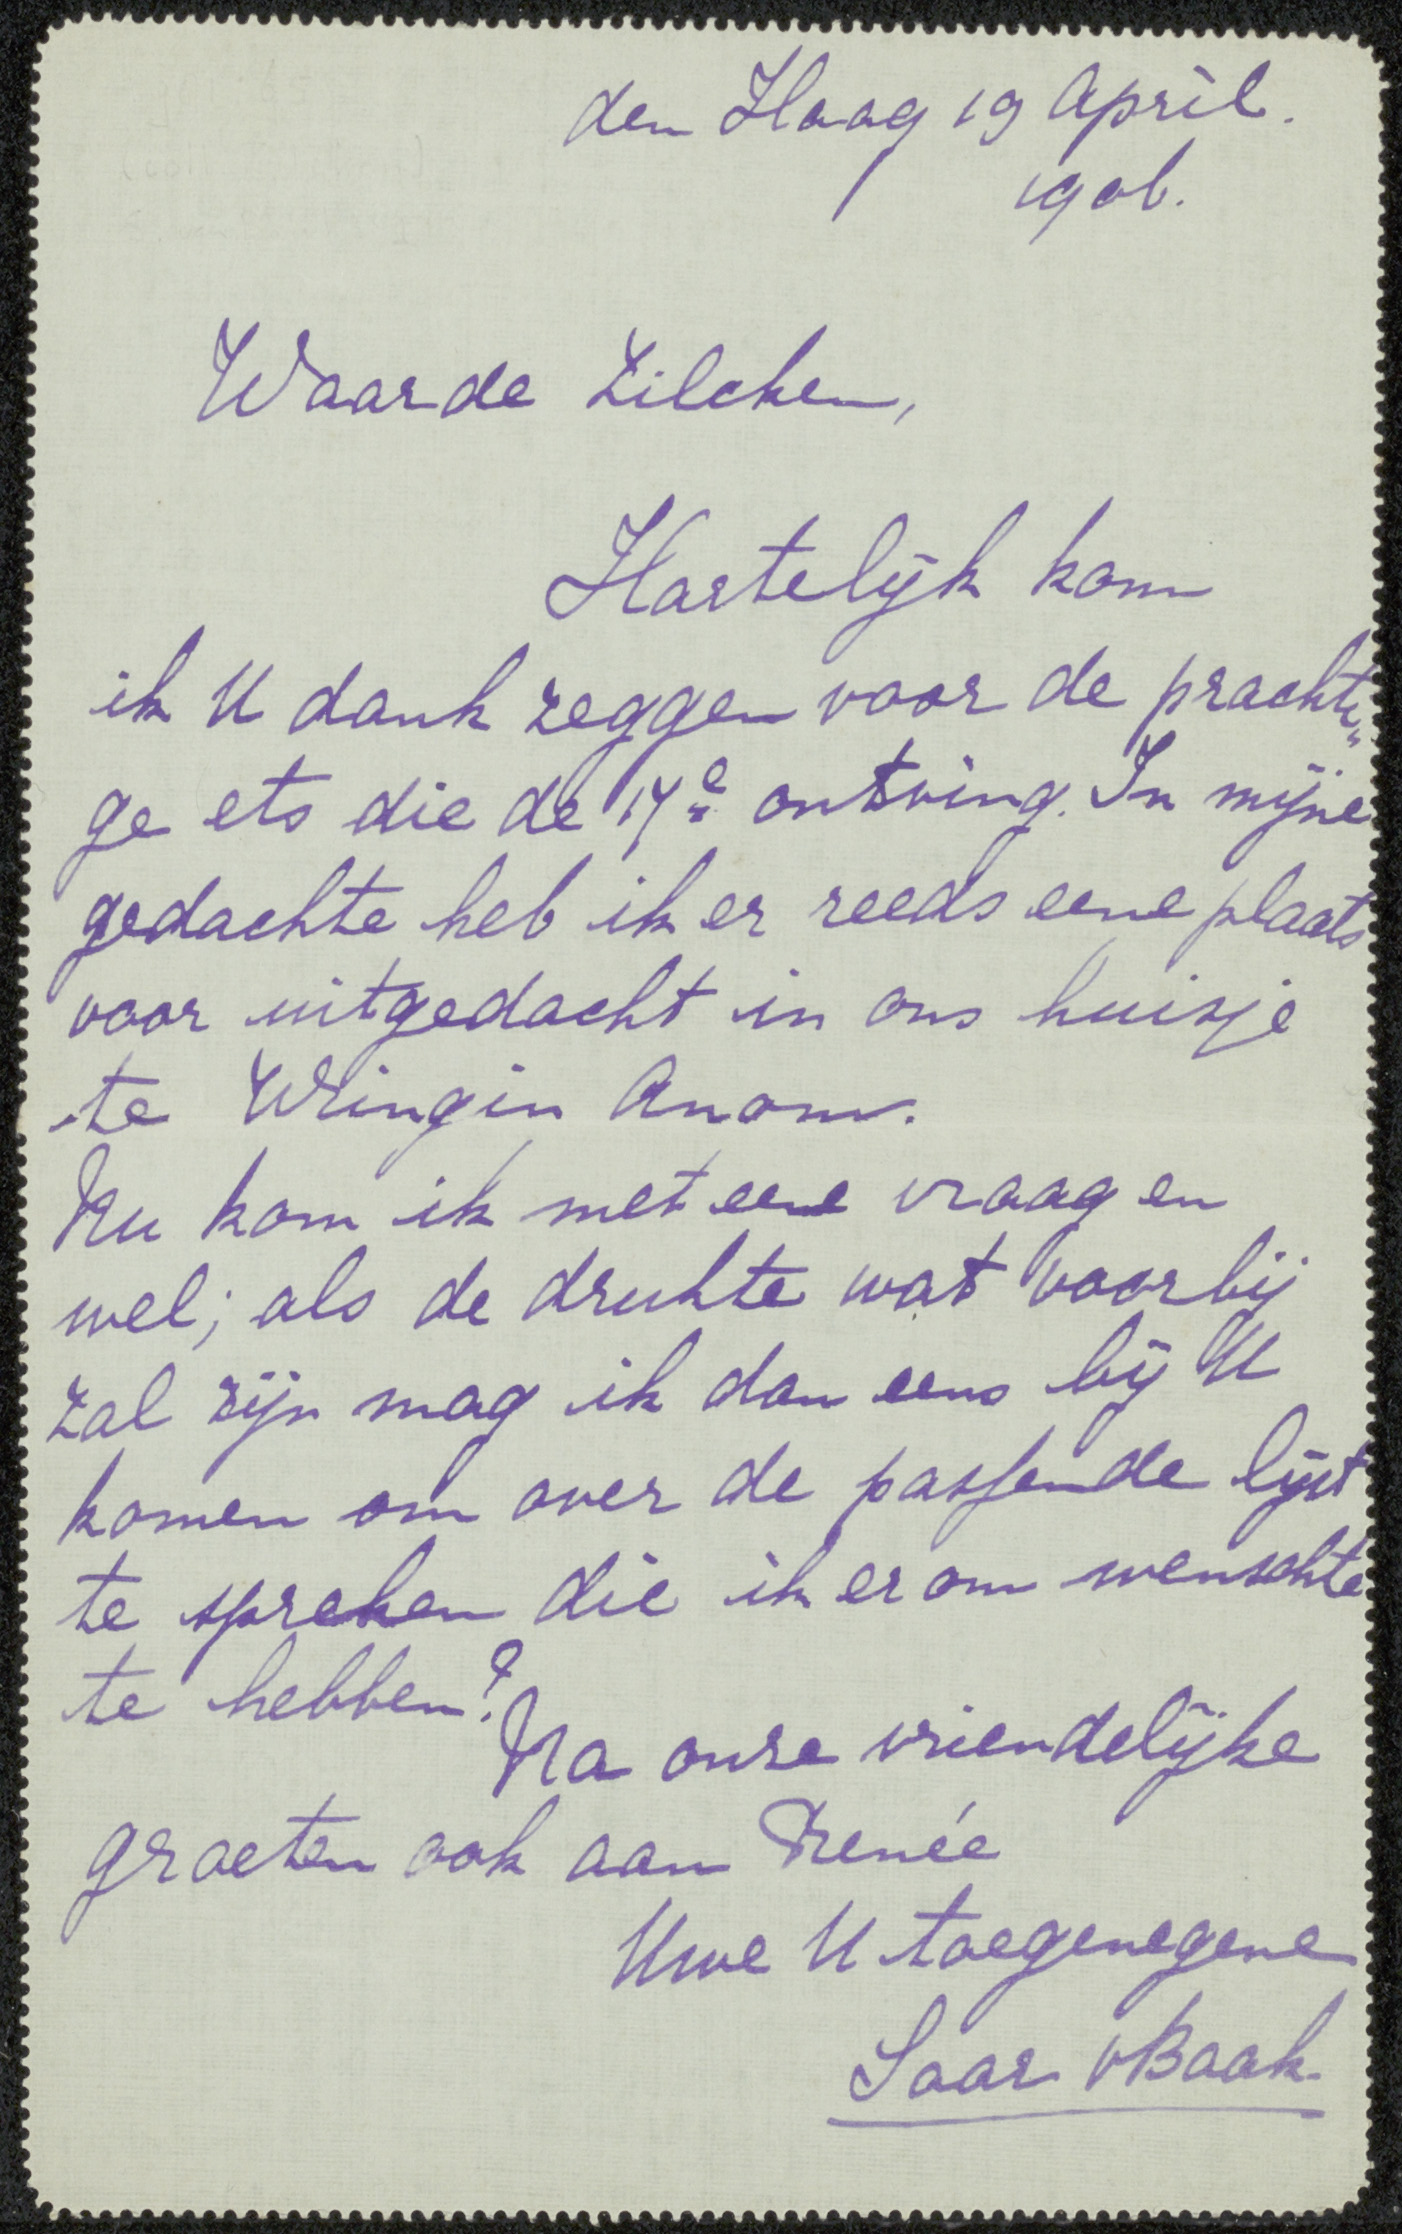 den Haag 19 April.
1906.
Waarde Zilcken,
Hartelijk kom
ik U dank zeggen voor de prachti„
ge ets die de 17e ontving. In mijne
gedachte heb ik er reeds eene plaats
voor uitgedacht in ons huisje
te Wringin Anom.
Nu kom ik met eene vraag en
wel; als de drukte wat voorbij
zal zijn mag ik dan eens bij U
komen om over de passende lijst
te spreken die ik er om wenschte
te hebben?
Na onze vriendelijke
groeten ook aan Renée
Uwe U toegenegene
Saar vBaak.